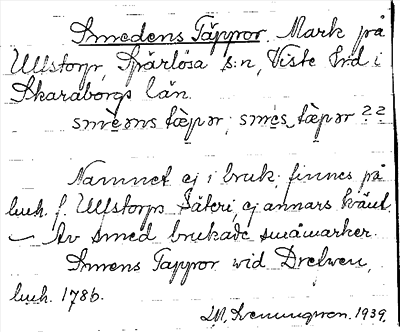 Smedens Täppor. Mark på
Ullstorp, Spärlösa s:n, Viste hd i
Skaraborgs län.
smèəns tæ̀pər; smes tæ̀pər ??
Namnet ej i bruk; finnes på
luk. f. Ullstorps Säteri, ej annars känt.
— Av smed brukade småmarker.
Smens Tappror wid Drelwen,
luk. 1786.
1939.